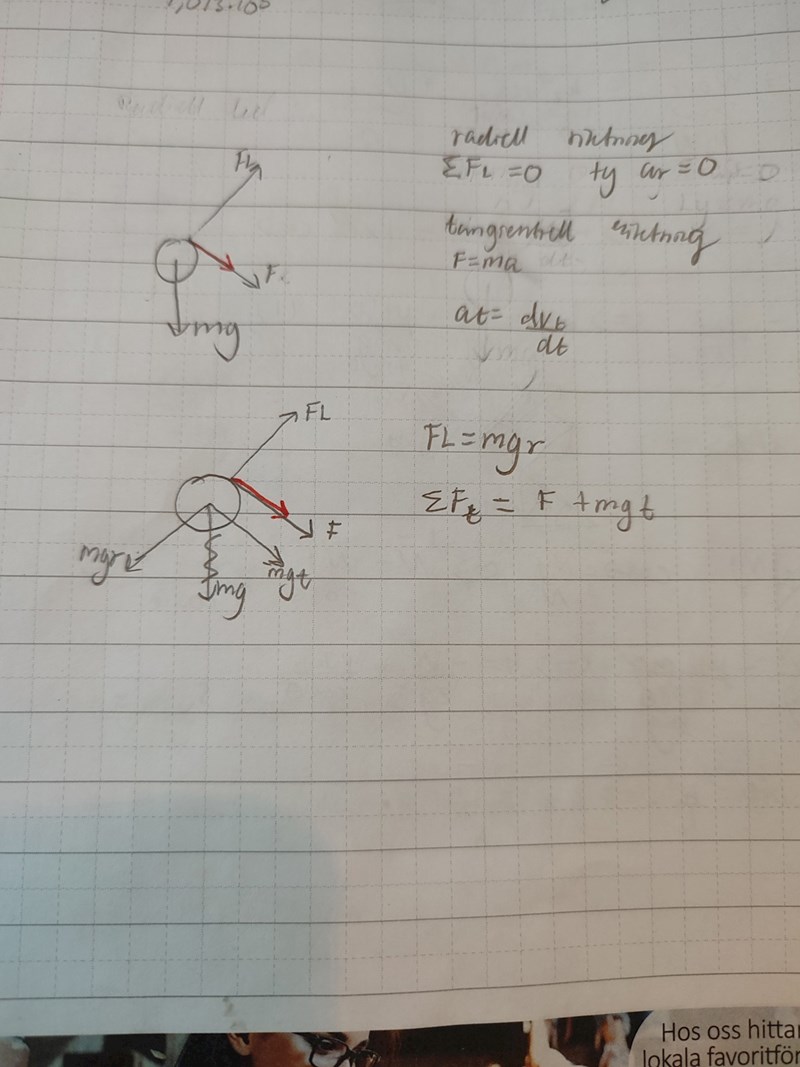 1,013.10⁵
radiell riktning
FL
ΣFL = 0 ty ar = 0
tangentiell riktning
F = ma
F
mg
at = dvt
dt
FL
FL = mgr
ΣFt = F + mgt
F
mgr
mgt
mg
Hos oss hittar
lokala favoritför